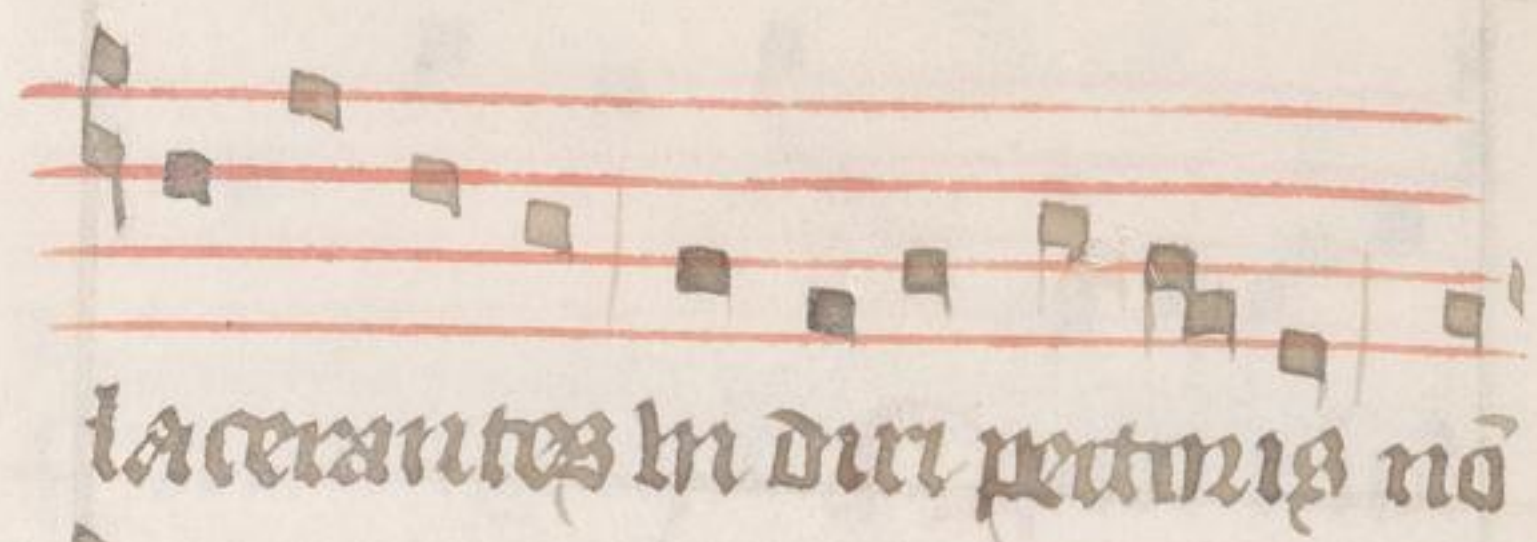 lacerantes hi diri pectoris nō